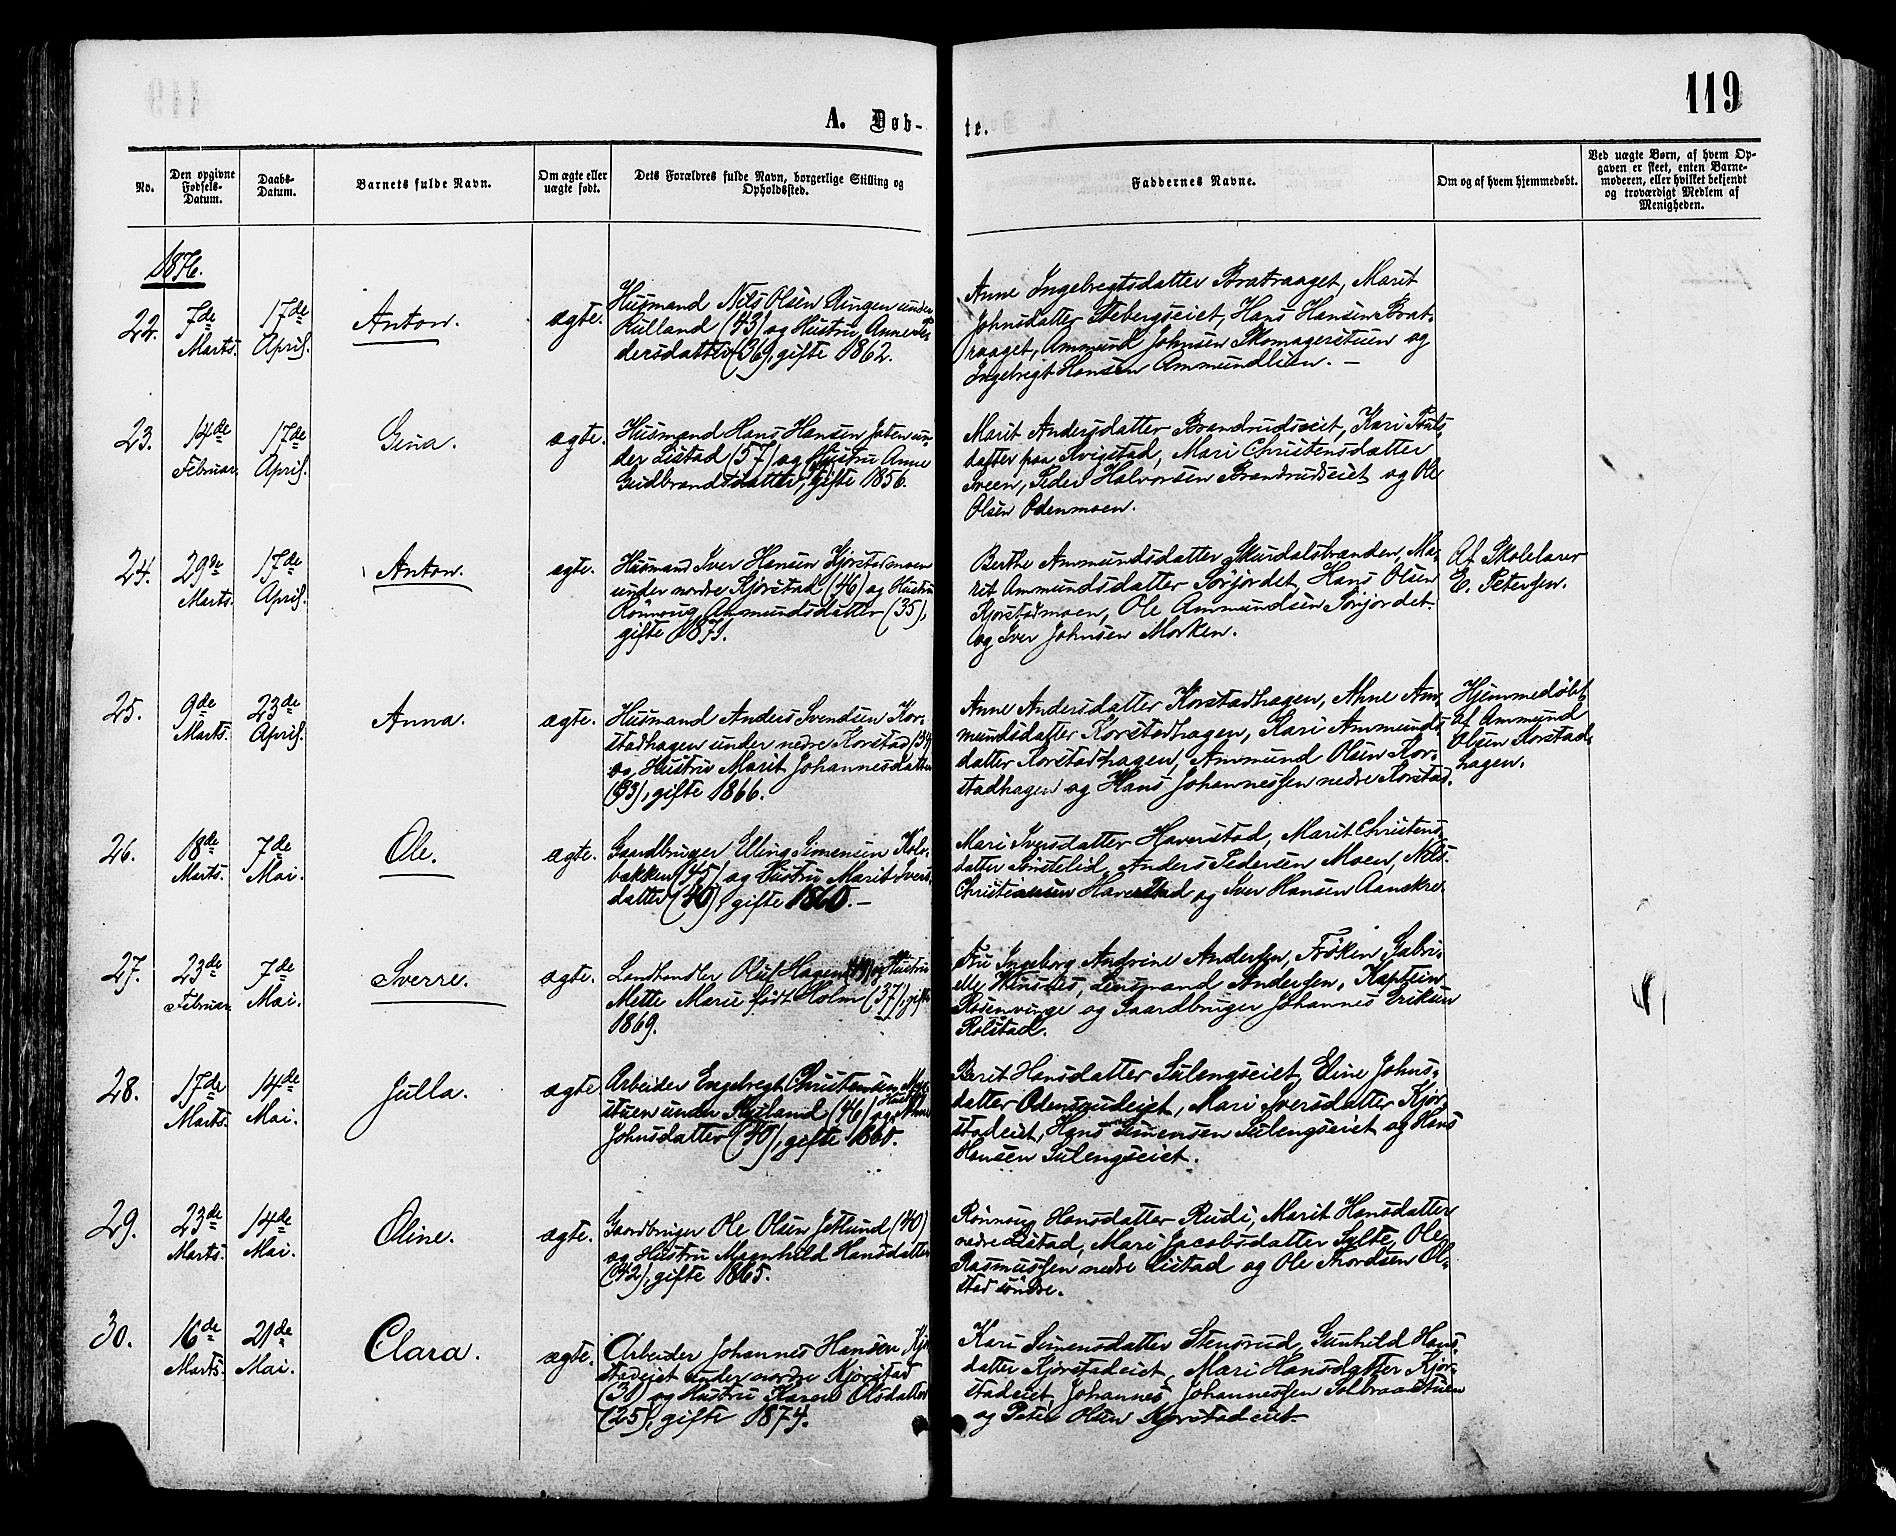 119
A. Døb-
te.
No.
Den opgivne
Fødsels-
Datum.
Daabs-
Datum.
Barnets fulde Navn.
Om ægte eller
uægte født.
Dets Forældres fulde Navn, borgerlige Stilling og
Opholdssted.
Faddernes Navne.
Om og af hvem hjemmedøbt.
Ved uægte Børn, af hvem Op-
gaven er skeet, enten Barne-
moderen, eller hvilket bekjendt
og troværdigt Medlem af
Menigheden.
1876.
22.
7de
Marts.
17de
April.
Anton.
ægte.
Husmand Nils Olsen Ringen under
Rulland (43) og Hustru Anne Pe-
dersdatter (36), gifte 1862.
Anne Ingebregtsdatter Bratraaget, Marit
Johnsdatter Stebergseiet, Hans Hansen Brat-
raaget, Ammund Johnsen Skomagerstuen og
Ingebregt Hansen Ammundlien. —
23.
14de
Februar.
17de
April.
Gina.
ægte.
Husmand Hans Hansen Joten un-
der Listad (57) og Hustru Anne
Gudbrandsdatter, gifte 1856.
Marit Andersdatter Brandrudseiet, Kari Pouls-
datter paa Kvigstad, Mari Christensdatter
Sveen, Peder Halvorsen Brandrudseiet og Ole
Olsen Odenmoen.
24.
29de
Marts.
17de
April.
Anton.
ægte.
Husmand Iver Hansen Kjorstadmoen
under nordre Kjorstad (46) og Hustru
Rönnoug Ammundsdatter (35),
gifte 1871.
Berthe Ammundsdatter Skurdalsbrænden, Ma-
rit Ammundsdatter Sørjordet, Hans Olsen
Kjorstadmoen, Ole Ammundsen Sørjordet
og Iver Johnsen Morken.
Af Skolelærer
E. Petersen.
25.
9de
Marts.
23de
April.
Anna.
ægte.
Husmand Anders Svendsen Kor-
stadhagen under nedre Korstad (34)
og Hustru Marit Johannesdatter
(33), gifte 1866.
Anne Andersdatter Korstadhagen, Anne Am-
mundsdatter Korstadhagen, Kari Ammunds-
datter Korstadhagen, Ammund Olsen Kor-
stadhagen og Hans Johannessen nedre Korstad.
Hjemmedøbt
af Ammund
Olsen Korstad-
hagen.
26.
18de
Marts.
7de
Mai.
Ole.
ægte.
Gaardbruger Elling Simensen Kolo-
bakken (45) og Hustru Marit Ivers-
datter (40), gifte 1860. —
Mari Iversdatter Haverstad, Marit Christens-
datter Sørstelid, Anders Pedersen Moen, Nils
Christiansen Haverstad og Iver Hansen Aanekre
27.
23de
Februar.
7de
Mai.
Sverre.
ægte.
Landhandler Oluf Hagen og Hustru
Mette Marie født Holm (37), gifte
1869.
Fru Ingeborg Andrine Andersen, Frøken Gabri-
elle Winsnes, Lensmand Andersen, Kaptein
Rosenvinge og Gaardbruger Johannes Eriksen
Rolstad.
28.
17de
Marts.
14de
Mai.
Julla.
ægte
Arbeider Engebregt Christensen
stuen under Rulland (46) og Hustru
Johnsdatter (40), gifte 1860.
Berit Hansdatter Sulengseiet, Eline Johns-
datter Odensrudeiet, Mari Iversdatter Kjor-
stadeiet, Hans Simensen Sulengseiet og Hans
Hansen Sulengseiet.
29.
23de
Marts.
14de
Mai.
Oline.
ægte.
Gaardbruger Ole Olsen Jetlund (40)
og Hustru Magnhild Hansdatter
(42), gifte 1865.
Rønnoug Hansdatter Rudi, Marit Hansdatter
nedre Listad, Mari Jacobsdatter Sylte, Ole
Rasmussen nedre Listad og Ole Thordsen Ol-
stad søndre.
30.
16de
Marts.
21de
Mai.
Clara.
ægte.
Arbeider Johannes Hansen Kjor-
stadeiet under nordre Kjorstad
(30) og Hustru Karen Olsdatter
(25), gifte 1874.
Kari Simensdatter Stensrud, Gunhild Hans-
datter Kjorstadeiet, Mari Hansdatter Kjor-
stadeiet Johannes Johannessen Solbraastuen
og Peter Olsen Kjorstadeiet